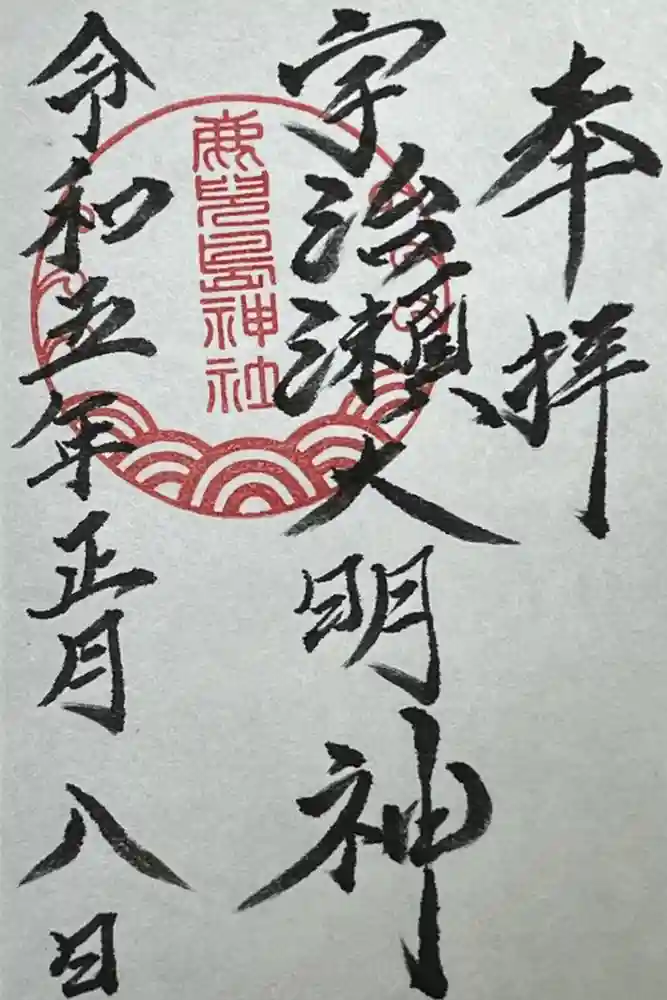 奉拝
宇治瀬大明神
鹿児島神社
令和五年正月八日